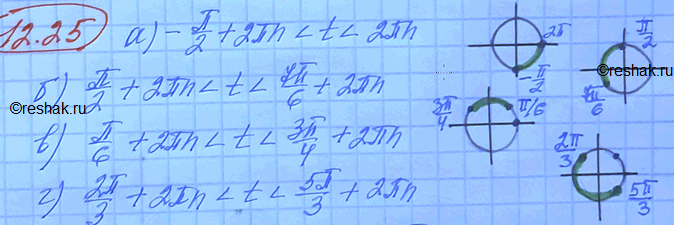 12.25 а) -π/2 + 2πn < t < 2πn
б) π/2 + 2πn < t < 7π/6 + 2πn
в) π/6 + 2πn < t < 3π/4 + 2πn
г) 2π/3 + 2πn < t < 5π/3 + 2πn
2π
-π/2
π/2
7π/6
3π/4
π/6
2π/3
5π/3
©reshak.ru
©reshak.ru
©reshak.ru